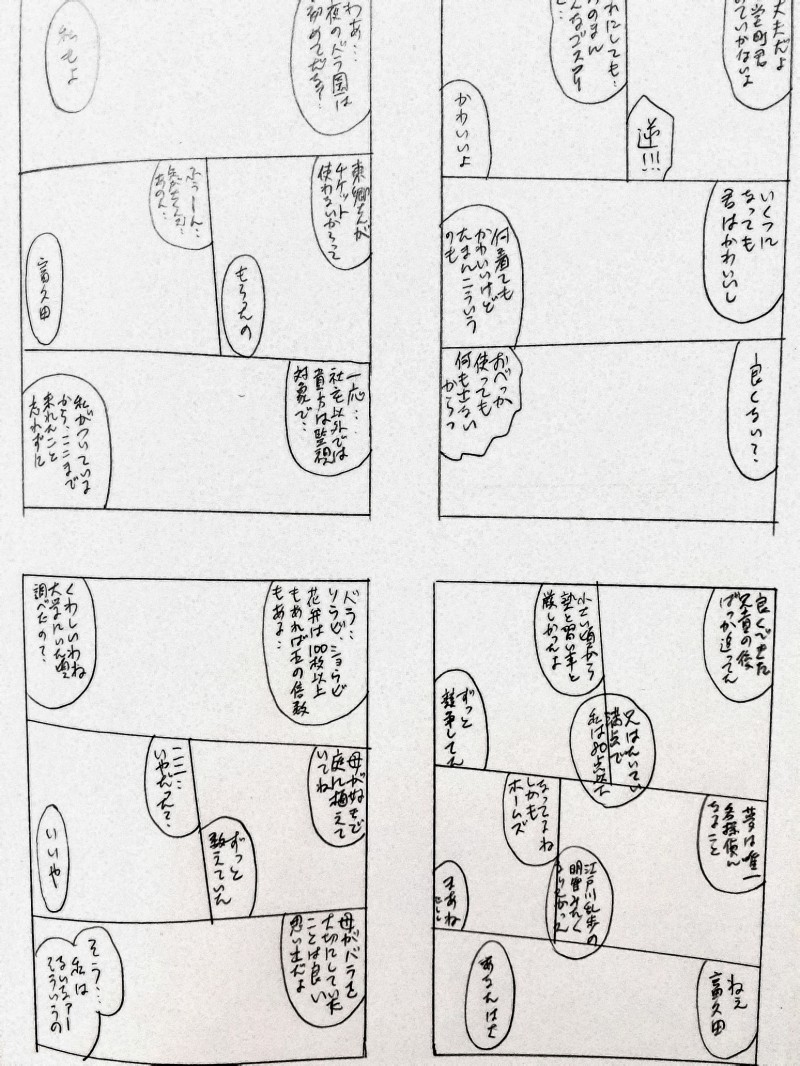 大丈夫だよ
堂町君
めていかないよ
れにしても…
みのまん
んなゴスロリ
と…
逆!!!
かわいいよ
いくつに
なっても
君はかわいいし
何着ても
かわいいけど
たまんこういう
のも
良くない?
おべっか
使っても
何も出ない
からっ
わあ…
夜のバラ園は
初めてだなァ…
私もよ
東郷さんが
チケット
使わないからって
もらったの
ふぅーん…
あの人…
富久田
一応…
社宅以外では
貴方は監視
対象で…
私がついている
から、ここまで
来れたこと
忘れずに
良くできた
兄貴の後
ばっか追ってた
小さい頃から
塾と習い事と
厳しかったよ
兄はたいてい
満点で
私は80点とか
ずっと
競争してた
夢は唯一
名探偵に
なること
なってるよね
しかも
ホームズ
江戸川乱歩の
明智みたく
なりたかった
まあね
ねえ
富久田
あなたはさ
バラ…
リラ
花弁は100枚以上
もあれば五の倍数
もある…
くわしいわね
調べたの?
母が好きで
庭に植えて
いてね
ずっと
数えていた
ここに…
いやだった?
いいや
母がバラを
大切にしていた
ことは良い
思い出だよ
そう…
私は
ないなァー
そういうの